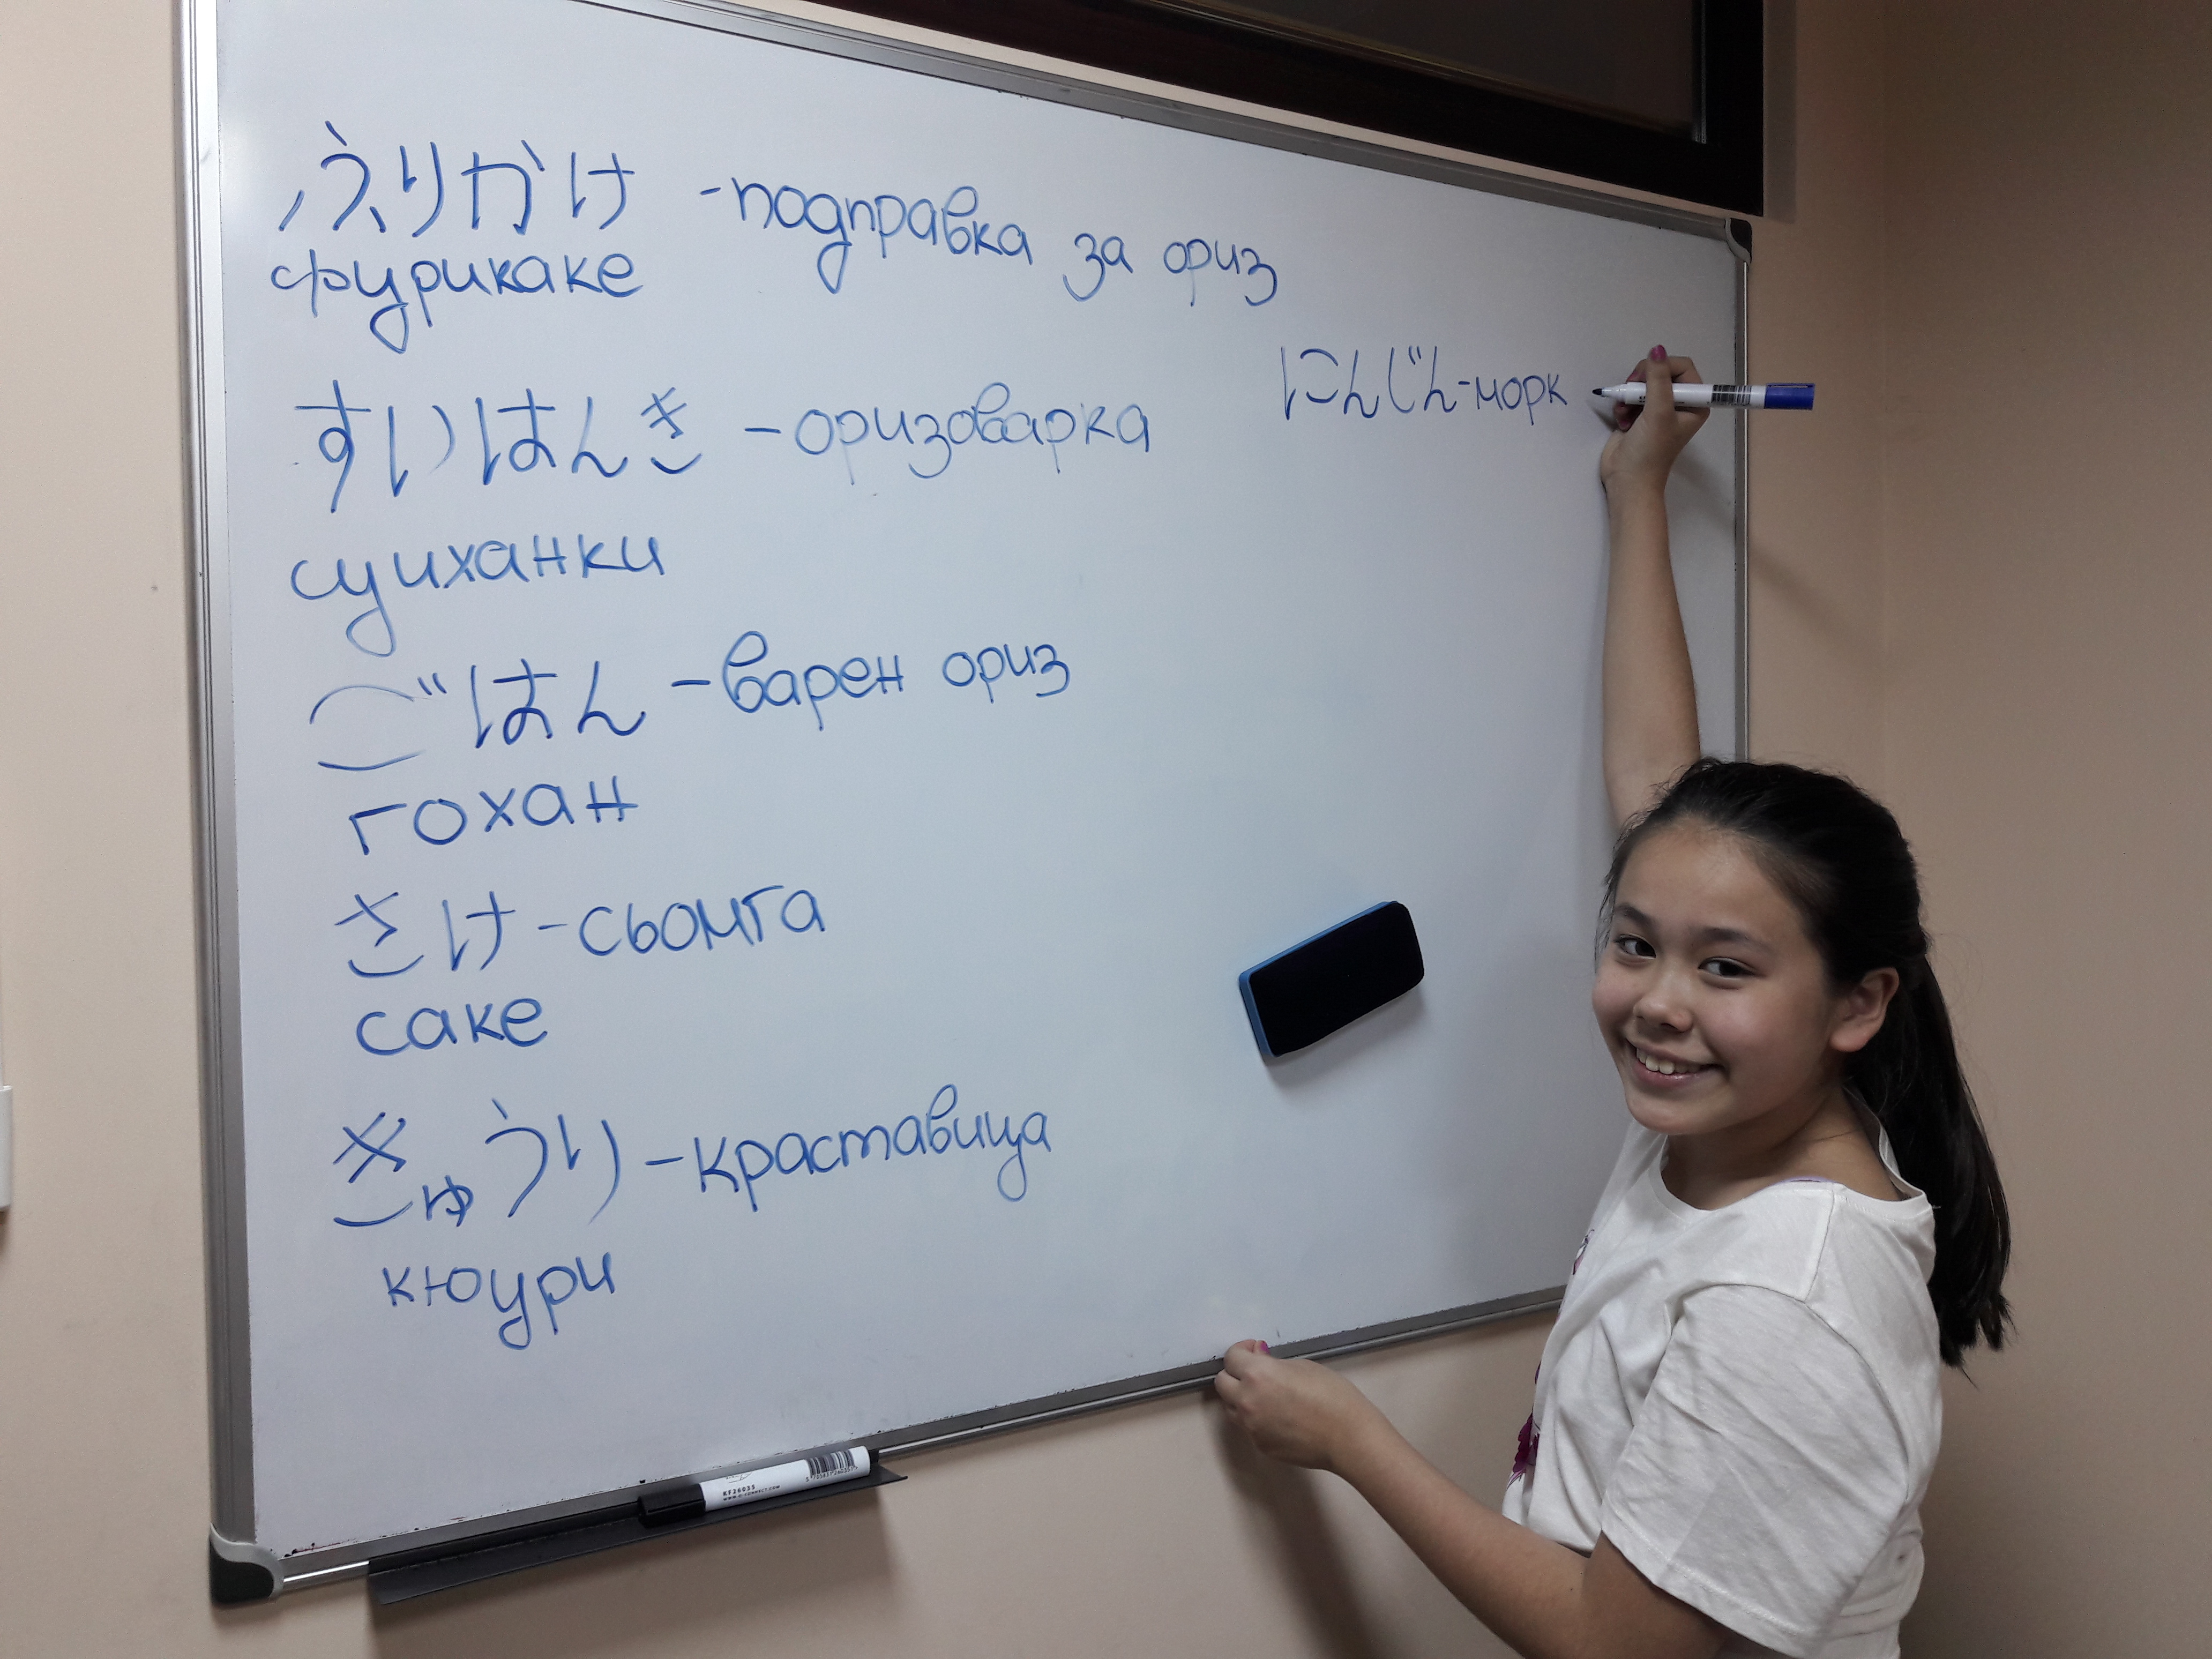 ふりがけ - подправка за ориз
фурикаке
にんじん-морк
すいはんき - оризоварка
суиханки
ごはん - варен ориз
гохан
さけ - сьомга
саке
きゅうり - краставица
кюури
KF26035